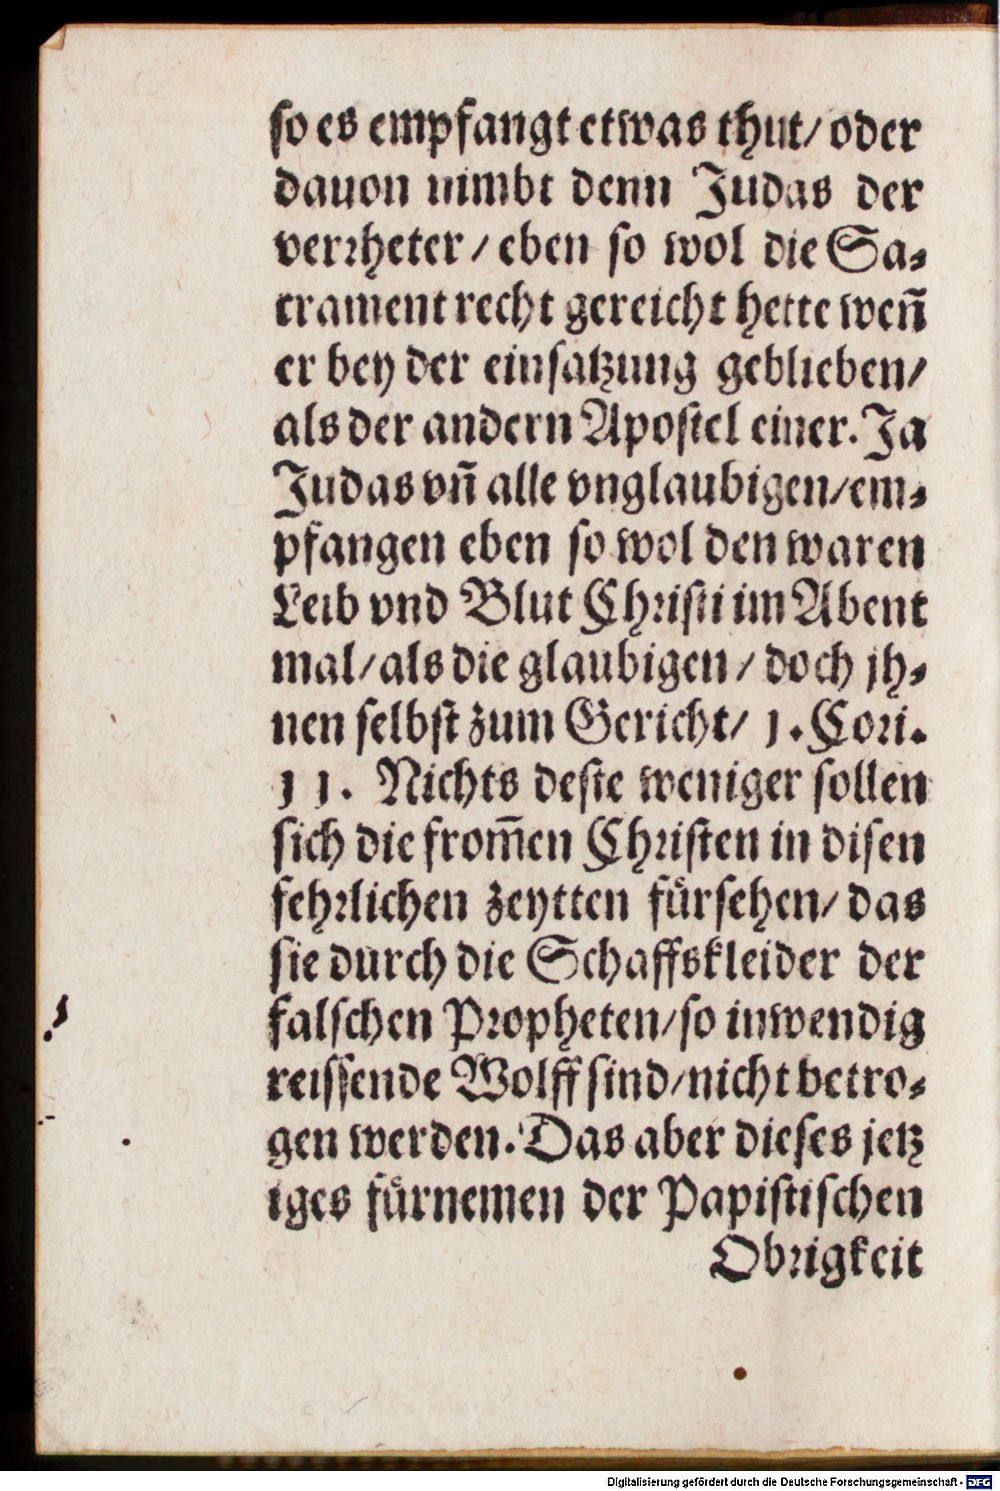 so es empfangt etwas thut/ oder
dauon nimbt denn Judas der
verrheter/ eben so wol die Sa-
crament recht gereicht hette wen̄
er bey der einsatzung geblieben/
als der andern Apostel einer. Ja
Judas vn̄ alle vnglaubigen/em-
pfangen eben so wol den waren
Leib vnd Blut Christi im Abent
mal/als die glaubigen/ doch jh-
nen selbst zum Gericht/ 1. Cori.
11. Nichts deste weniger sollen
sich die from̄en Christen in disen
fehrlichen zeytten fuͤrsehen/ das
sie durch die Schaffskleider der
falschen Propheten/so inwendig
reissende Wolff sind/nicht betro-
gen werden. Das aber dieses jetz
iges fuͤrnemen der Papistischen
Obrigkeit
Digitalisierung gefördert durch die Deutsche Forschungsgemeinschaft - DFG